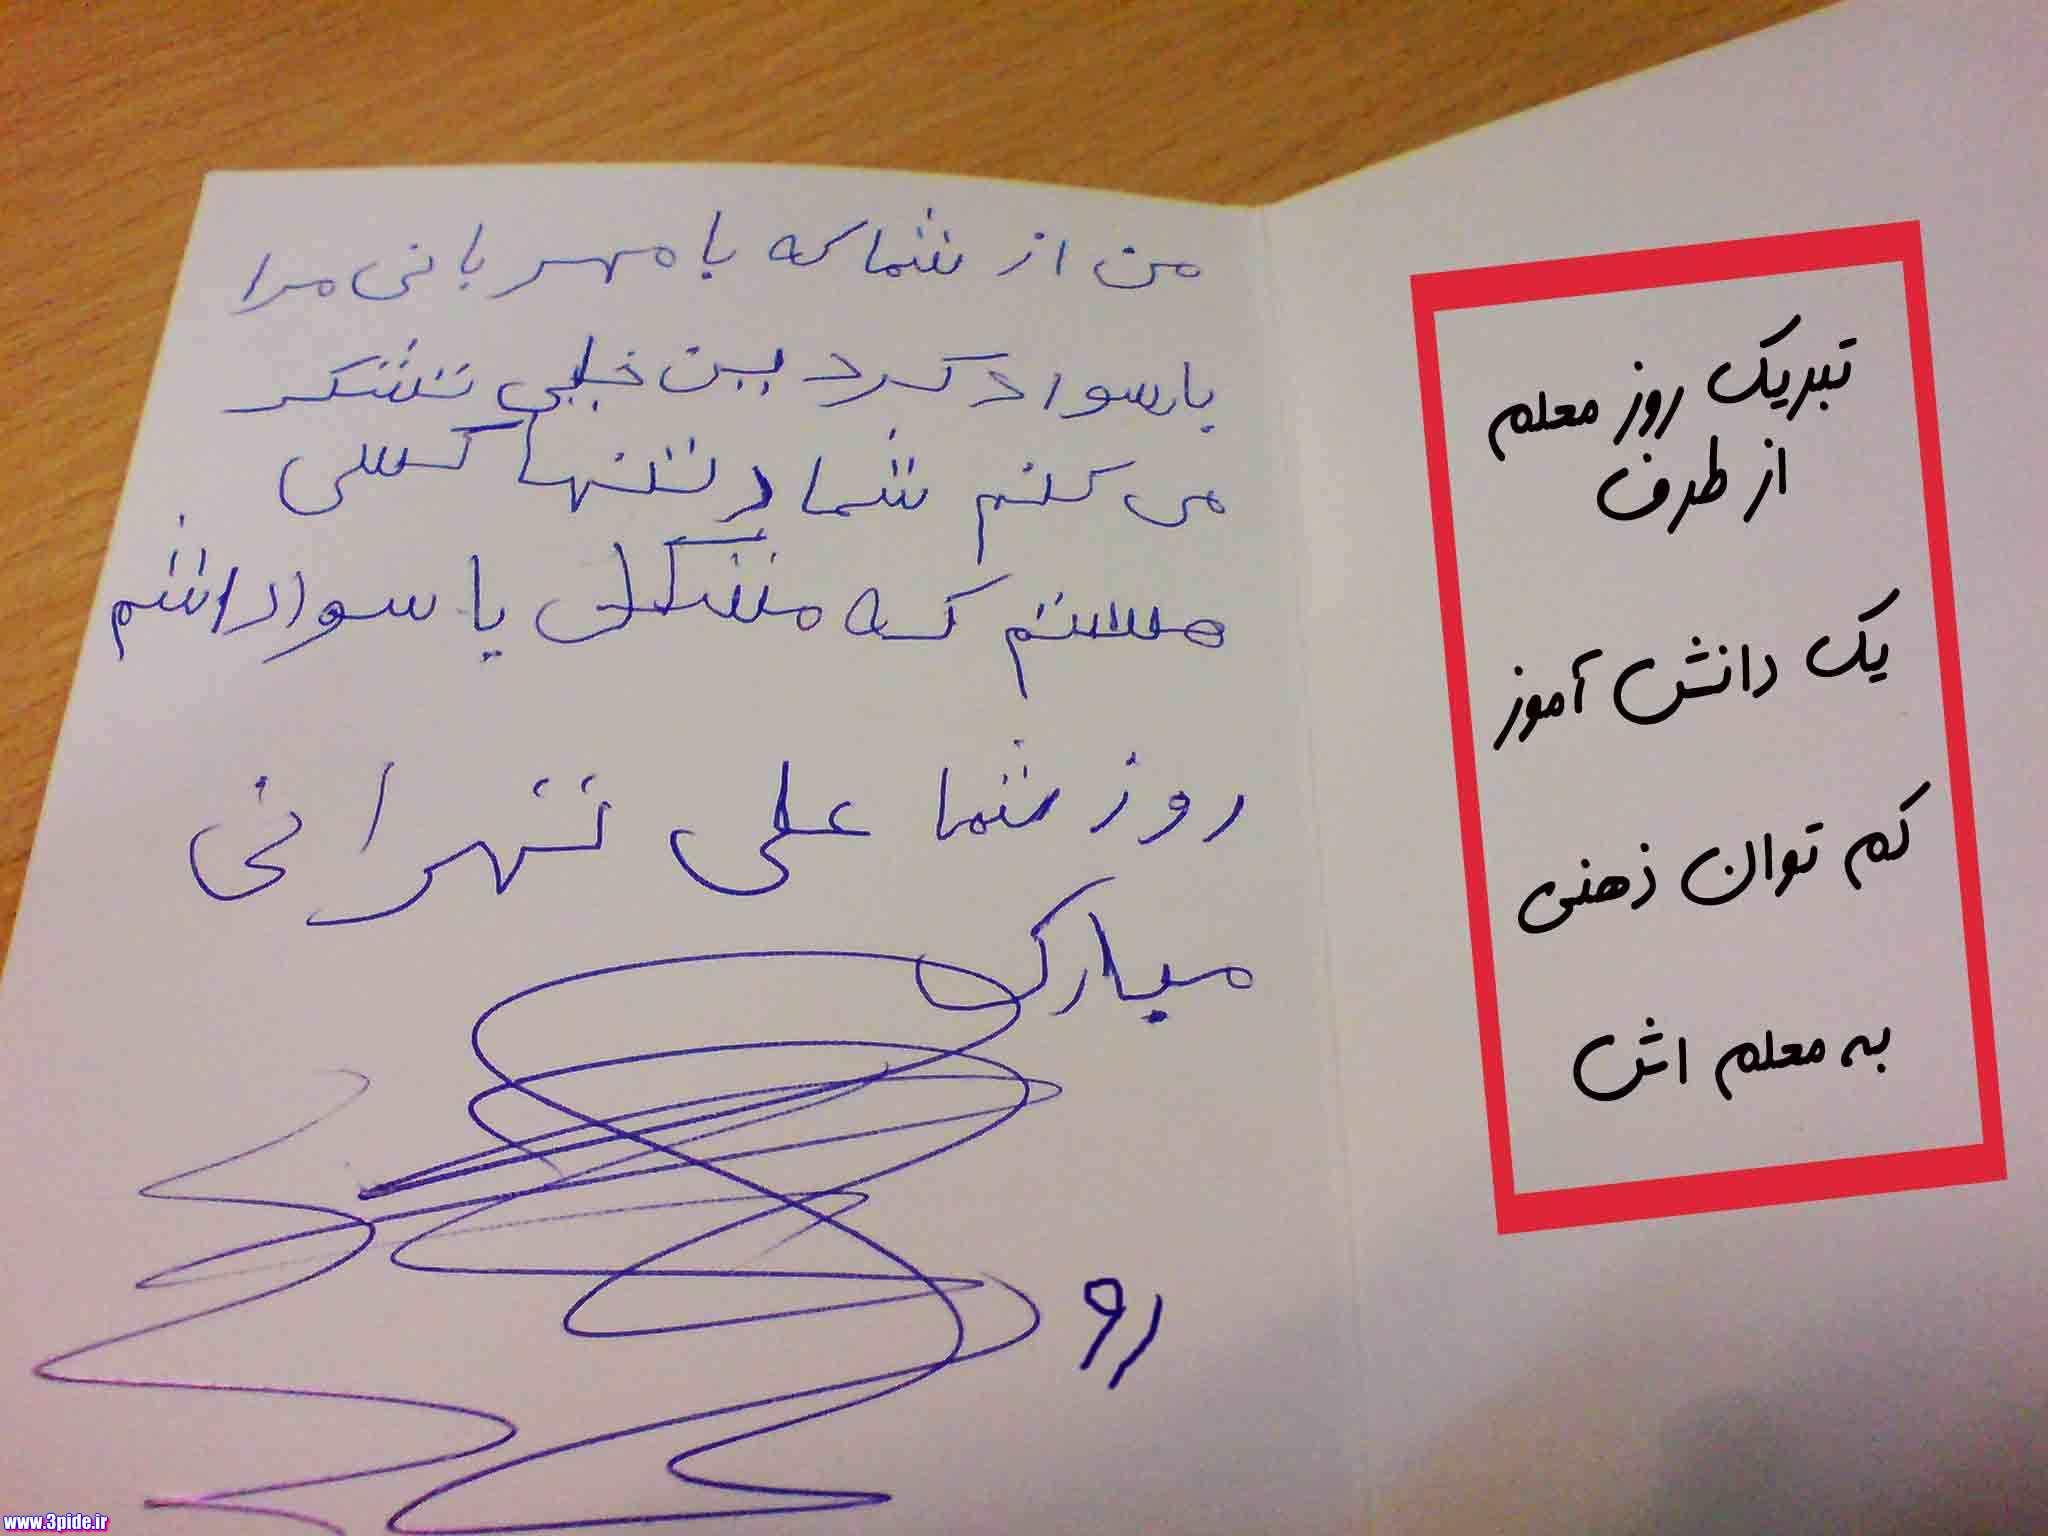 من از شما که با مهربانی مرا
باسواد کرد ین خیلی تشکر
می کنم شما تنها کسی
هستم که مشکلی با سواد اشم
روز شما علی تهرانی
مبارک
رو
تبریک روز معلم
از طرف
یک دانش آموز
کم توان ذهنی
به معلم اش
www.3pide.ir